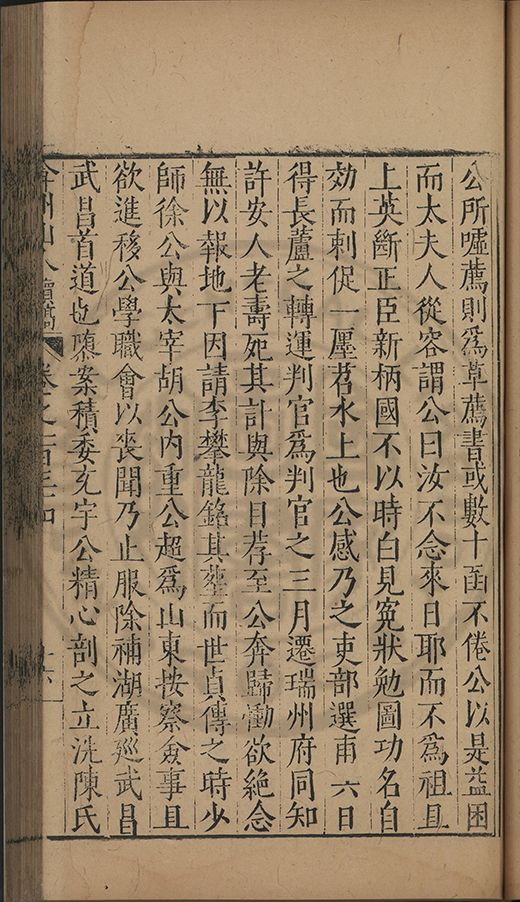 公所噓薦則爲草薦書或數十函不倦公以是益困
而太夫人從容謂公曰汝不念來日耶而不爲祖且
上英斷正臣新柄國不以時白見寃狀勉圖功名自
効而刺促一廛苕水上也公感乃之吏部選甫六日
得長蘆之轉運判官爲判官之三月遷瑞州府同知
許安人老壽死其計與除目荐至公奔歸慟欲絶念
無以報地下因請李攀龍銘其塟而世貞傳之時少
師徐公與太宰胡公內重公超爲山東按察僉事且
欲進移公學職會以喪聞乃止服除補湖廣廵武昌
武昌首道也隳案積委充宇公精心剖之立洗陳氏
弇州山人續稿 卷之一百三十四